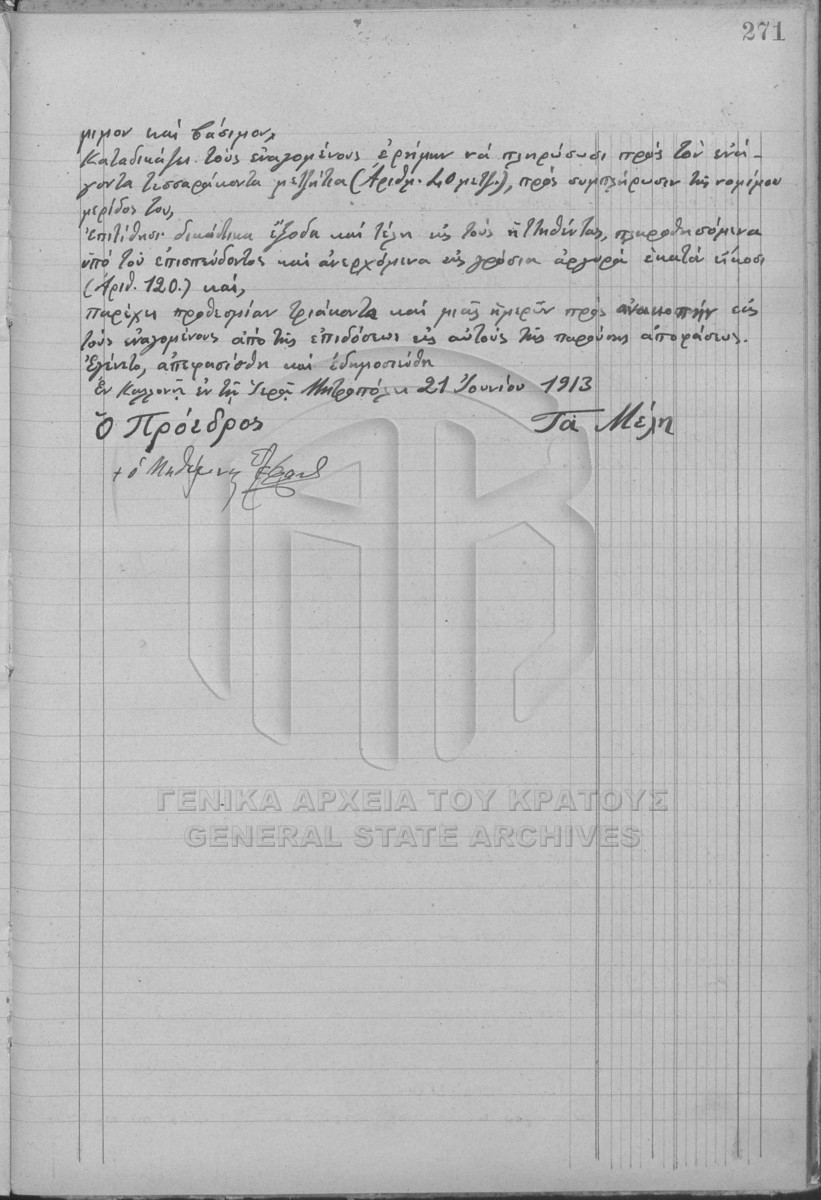 271
μιμον καὶ βάσιμον,
Καταδικάζει τοὺς ἐναγομένους ἐρήμην νὰ πληρώσωσι πρὸς τὸν ἐνά-
γοντα τεσσαράκοντα μετζήτια (Ἀριθμ. 40 μετζ.), πρὸς συμπλήρωσιν τῆς νομίμου
μερίδος του,
Ἐπιτίθησι δικάσιμα ἔξοδα καὶ τέλη εἰς τοὺς ἡττηθέντας, πληρωθησόμενα
ὑπὸ τοῦ ἐπισπεύδοντος καὶ ἀνερχόμενα εἰς γρόσια ἀργυρᾶ ἑκατὸν εἴκοσι
(Ἀριθ. 120.) καί,
παρέχει προθεσμίαν τριάκοντα καὶ μιᾶς ἡμερῶν πρὸς ἀνακοπήν εἰς
τοὺς ἐναγομένους ἀπὸ τῆς ἐπιδόσεως εἰς αὐτοὺς τῆς παρούσης ἀποφάσεως.
Ἐγένετο, ἀπεφασίσθη καὶ ἐδημοσιεύθη
Ἐν Καλλονῇ ἐν τῇ Ἱερᾷ Μητροπόλει 21 Ἰουνίου 1913
Ὁ Πρόεδρος Τὰ Μέλη
+ ὁ Μηθύμνης
ΓΕΝΙΚΑ ΑΡΧΕΙΑ ΤΟΥ ΚΡΑΤΟΥΣ
GENERAL STATE ARCHIVES